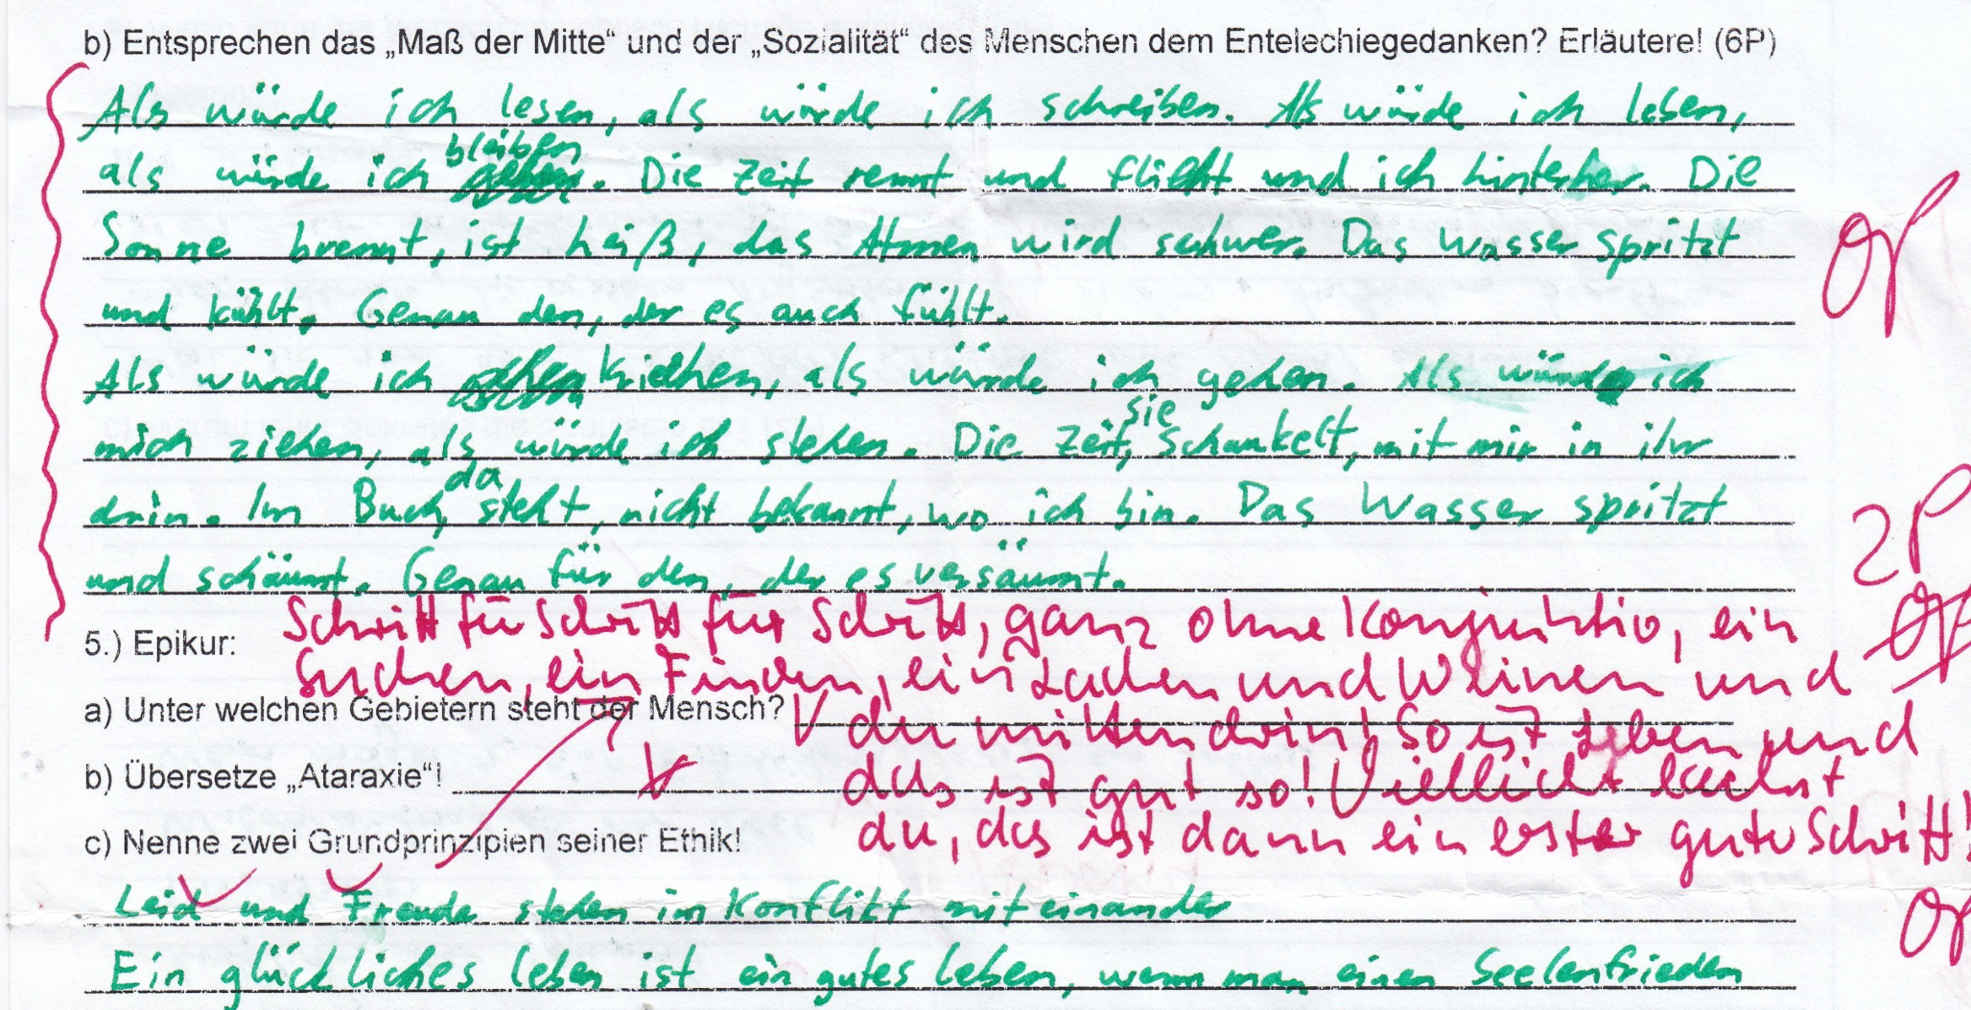 b) Entsprechen das „Maß der Mitte“ und der „Sozialität“ des Menschen dem Entelechiegedanken? Erläutere! (6P)
Als würde ich lesen, als würde ich schreiben. Als würde ich leben,
als würde ich bleiben. Die Zeit rennt und flieht und ich hinterher. Die
Sonne brennt, ist heiß, das Atmen wird schwer. Das Wasser spritzt
und kühlt. Genau den, der es auch fühlt.
0P
Als würde ich kriechen, als würde ich gehen. Als würde ich
mich ziehen, als würde ich stehen. Die Zeit, sie schaukelt, mit mir in ihr
drin. Im Buch, da steht, nicht bekannt, wo ich bin. Das Wasser spritzt
und schäumt. Genau für den, der es versäumt.
2P
Schritt für Schritt für Schritt, ganz ohne Konjunktiv, ein
0P
5.) Epikur:
Suchen, ein Finden, ein Lachen und Weinen und
a) Unter welchen Gebietern steht der Mensch?
du mittendrin! So ist Leben und
b) Übersetze „Ataraxie“!
das ist gut so! Vielleicht lachst
c) Nenne zwei Grundprinzipien seiner Ethik!
du, das ist dann ein erster guter Schritt!
Leid und Freude stehen im Konflikt miteinander
0P
Ein glückliches Leben ist ein gutes Leben, wenn man einen Seelenfrieden